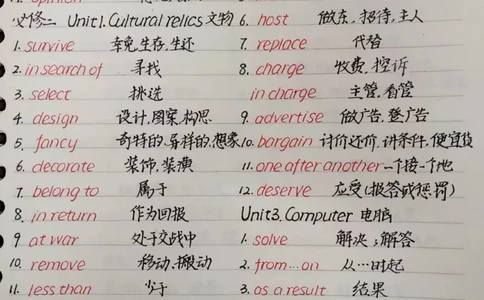 必修二 Unit1. Cultural relics 文物
1. survive 幸免,生存,生还
2. in search of 寻找
3. select 挑选
4. design 设计,图案,构思
5. fancy 奇特的,异样的,想象
6. decorate 装饰,装潢
7. belong to 属于
8. in return 作为回报
9 at war 处于交战中
10. remove 移动,搬动
11. less than 少于
6. host 做东,招待,主人
7. replace 代替
8. charge 收费,控诉
in charge 主管,看管
9. advertise 做广告,登广告
10. bargain 讨价还价,讲条件,便宜货
11. one after another 一个接一个地
12. deserve 应受(报答或惩罚)
Unit3. Computer 电脑
1. solve 解决;解答
2. from...on 从...时起
3. as a result 结果